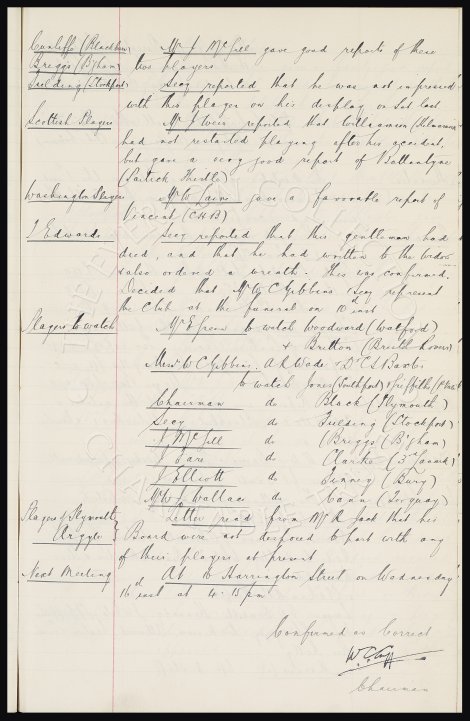 Cunliffe (Blackburn) Mr J. McGill gave good reports of these
Briggs (B'gham) two players
Fielding (Stockport) Secy reported that he was not impressed
with this player on his display on Sat last
Scottish Players Mr J Weir reported that Williamson (Kilmarnock
had not restarted playing after his accident,
but gave a very good report of Ballantyne
(Partick Thistle)
Washington Players Mr W gave a favorable report of
Vincent (C.H.B)
J Edwards Secy reported that this gentleman had
died, and that he had written to the widow
& also ordered a wreath. This was confirmed.
Decided that Mr W C Gibbins & Secy represent
the Club at the funeral on 10th inst
Players to watch Mr E Green to watch Woodward (Watford)
& Britton (Bristol Rovers)
Messrs W C Gibbins, A R Wade & Dr C S Baxter
to watch Jones (Southport) & Griffiths (P. Vale)
Chairman do Black (Plymouth)
Secy do Fielding (Stockport)
J McGill do (Briggs (B'gham)
J do Clarke (3rd Lanark)
J Elliott do Finney (Bury)
Mr J Wallace do Cann (Torquay)
Players of Plymouth Letter read from Mr R Jack that his
Argyle Board were not disposed to part with any
of their players at present
Next Meeting At 16 Harrington Street on Wednesday
16th inst at 4.15 pm
Confirmed as Correct
W. C. Cuff
Chairman